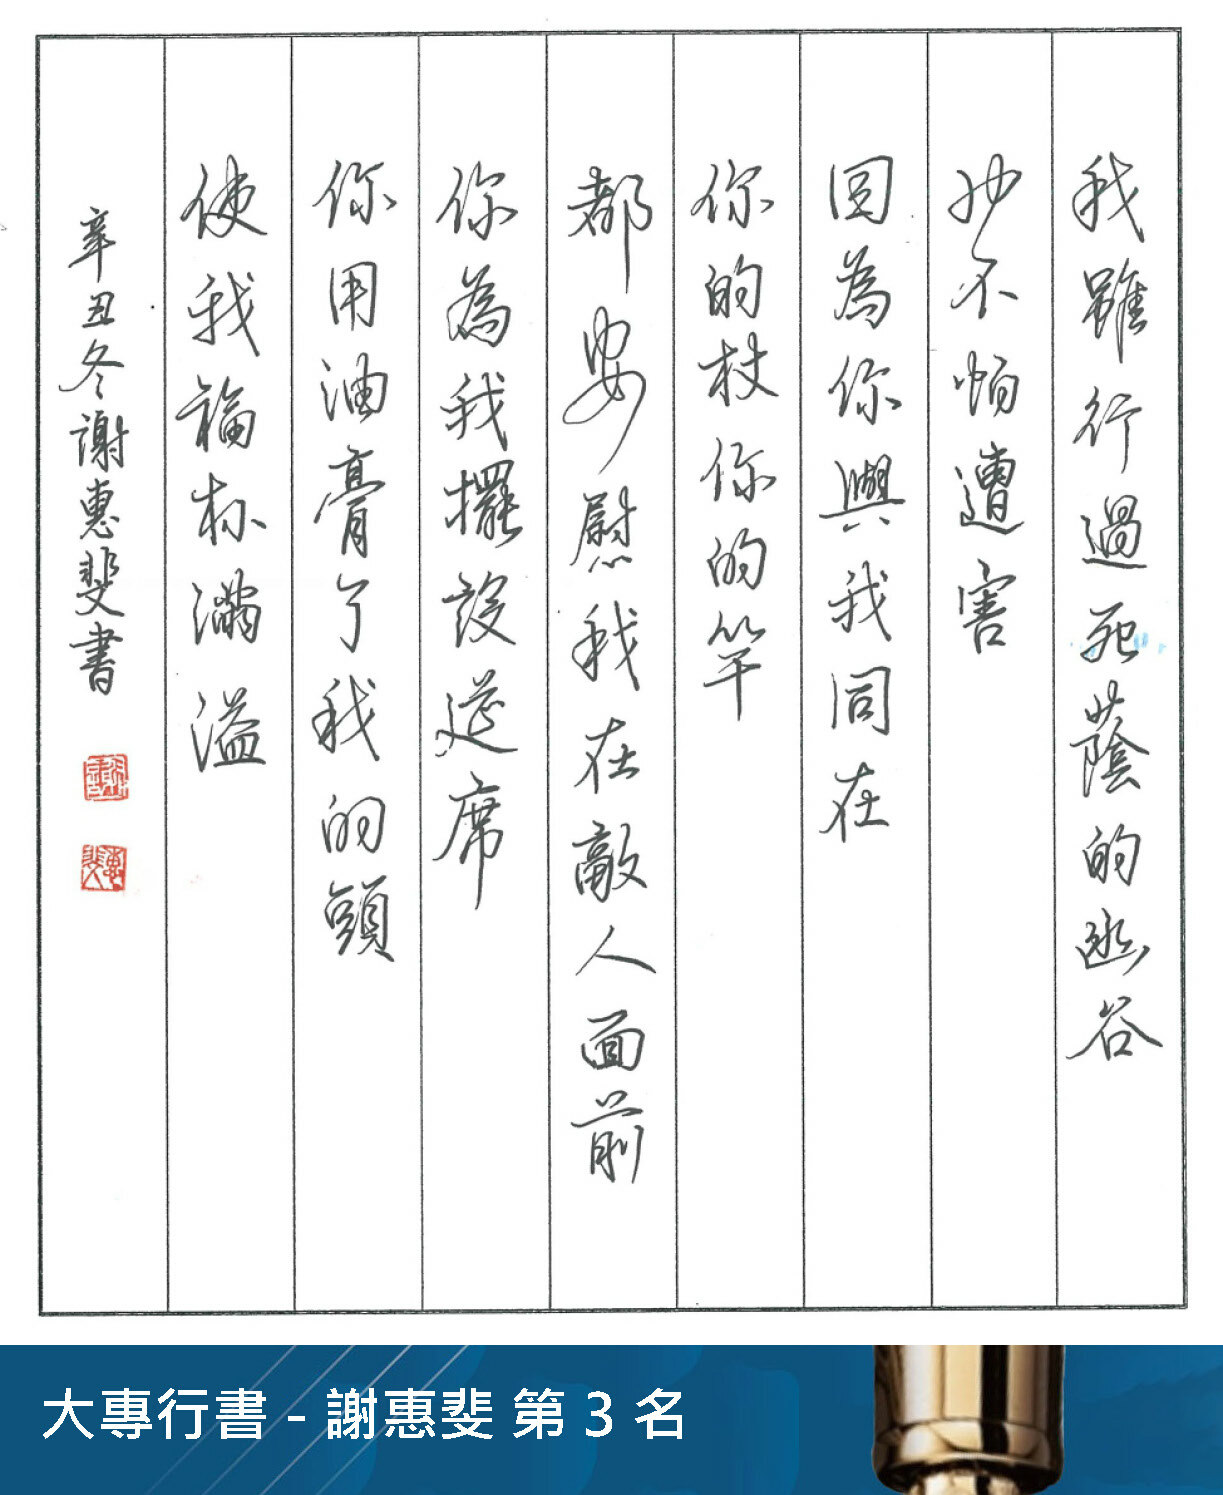 我雖行過死蔭的幽谷
也不怕遭害
因為你與我同在
你的杖你的竿
都安慰我在敵人面前
你為我擺設筵席
你用油膏了我的頭
使我福杯滿溢
辛丑冬謝惠斐書
謝
惠斐
大專行書 - 謝惠斐 第 3 名